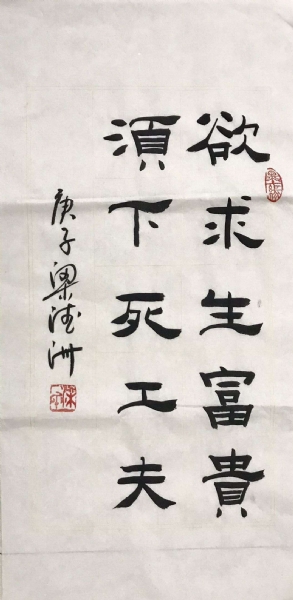 欲求生富貴
須下死工夫
庚子梁德洲